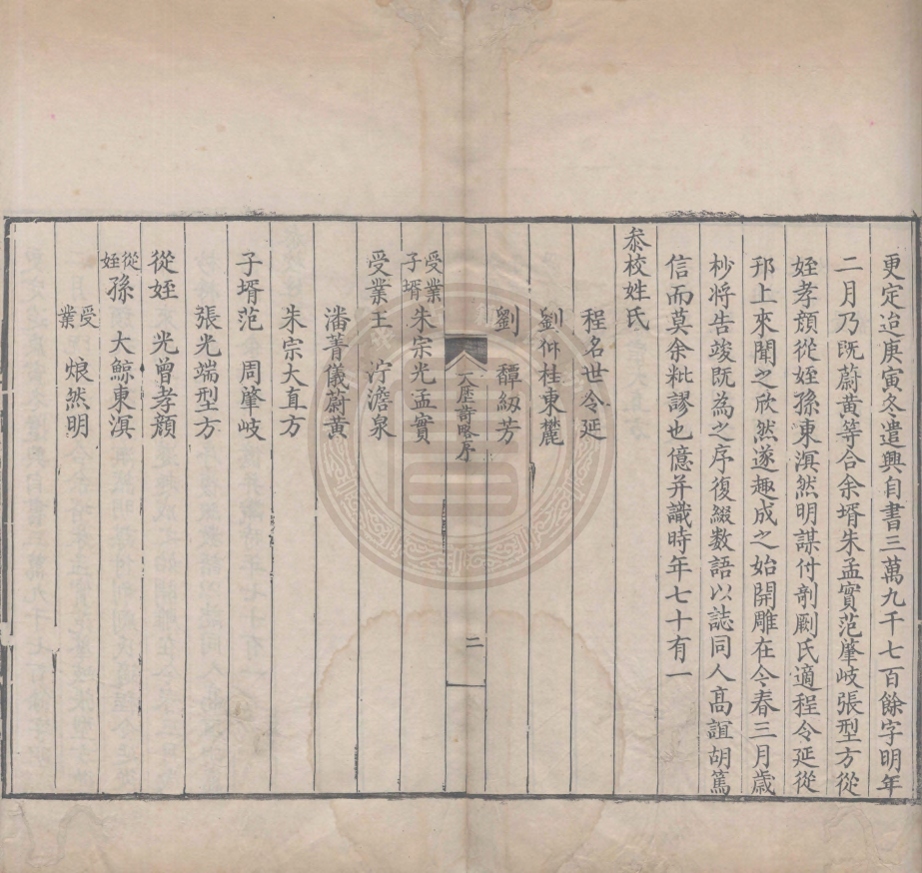 更定迨庚寅冬遣興自書三萬九千七百餘字明年
二月乃旣蔚黃等合余壻朱孟實范肇岐張型方從
姪孝頫從姪孫東溟然明謀付剞劂氏適程令延從
邗上來聞之欣然遂趣成之始開雕在今春三月歲
杪將告竣旣為之序復綴數語以誌同人高誼胡篤
信而莫余粃謬也億幷識時年七十有一
叅校姓氏
程名世令延
劉仲桂東麓
劉 馥紉芳
大歷詩略序
二
受業子壻朱宗光孟實
受業王 泞澹泉
潘菁儀蔚黃
朱宗大直方
子壻范 周肇岐
張光端型方
從姪 光曾孝頫
從姪孫 大鯨東溟
受業 烺然明